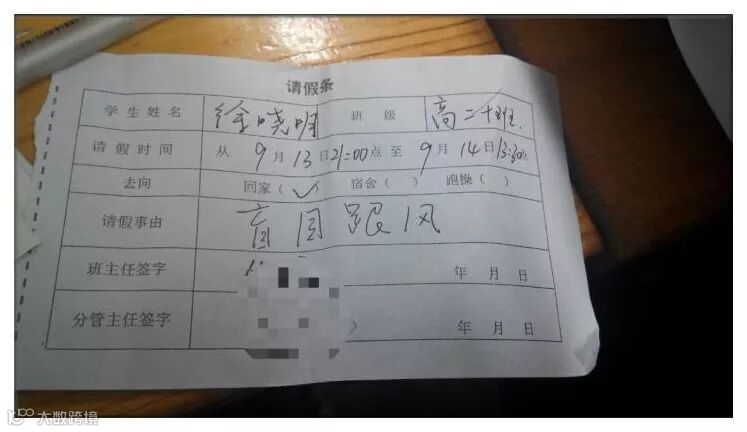 请假条
学生姓名 徐晓明 班级 高二十班.
请假时间 从9月13日21:00点至9月14日13:30点
去向 回家(✓) 宿舍( ) 跑操( )
请假事由 盲目跟风
班主任签字 年 月 日
分管主任签字 年 月 日
大数跨境